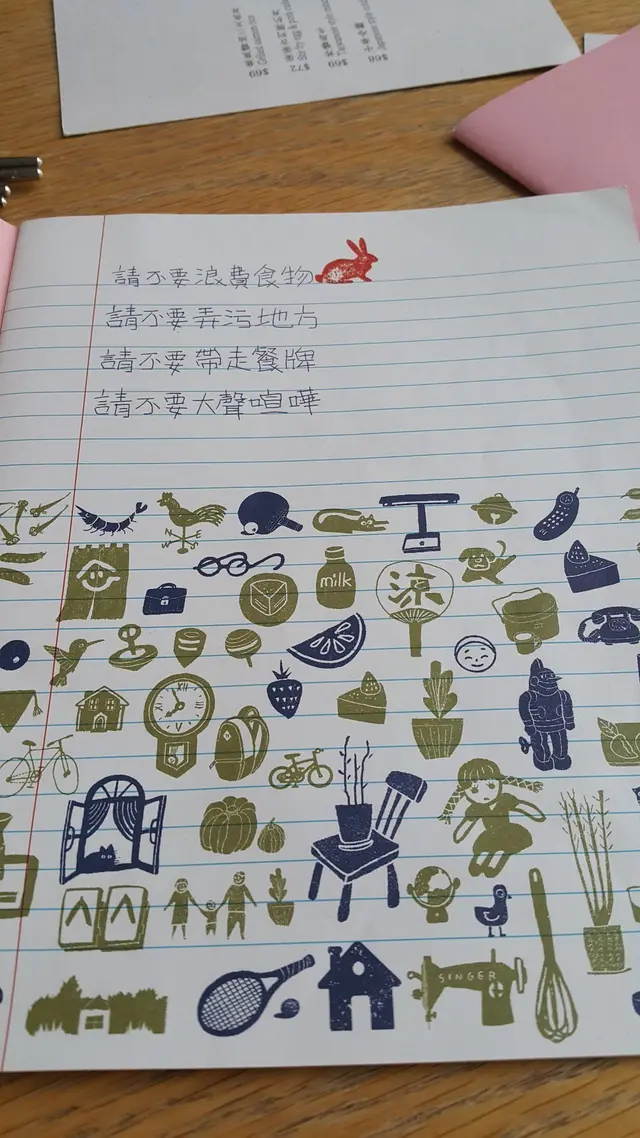 請不要浪費食物
請不要弄污地方
請不要帶走餐牌
請不要大聲喧嘩
N
W E
S
milk
涼
SINGER
$69
$72
$69
$68